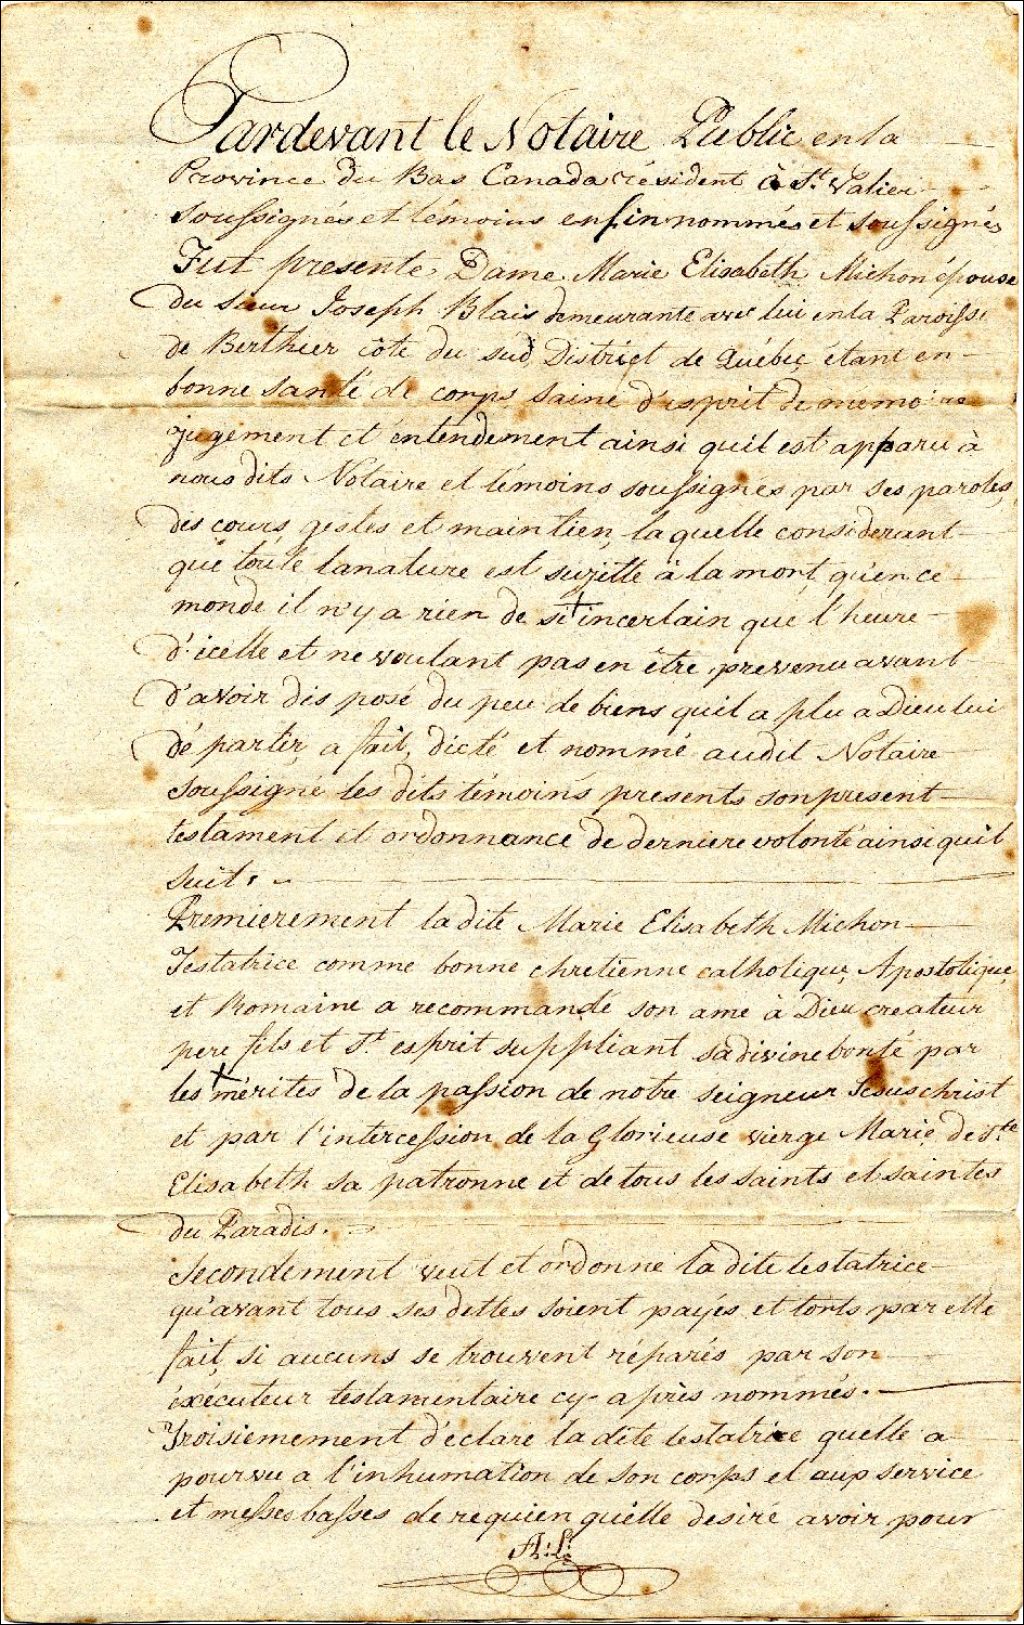 Pardevant le Notaire Public en la
Province du Bas Canada résident à St. Valier
Soussignés et témoins enfin nommés et soussignés
Fut presente Dame Marie Elisabeth Michon épouse
du sieur Joseph Blais demeurante avec lui en la Paroisse
de Berthier côte du sud District de Québec étant en
bonne santé de corps saine d'esprit de mémoire
jugement et entendement ainsi quil est apparu à
nous dits Notaire et témoins soussignés par ses paroles,
discours, gestes et maintien, laquelle considerant
que toute la nature est sujette à la mort, qu'en ce
monde il n'y a rien de si + incertain que l'heure
d'icelle et ne voulant pas en être prevenu avant
d'avoir disposé du peu de biens quil a plu a Dieu lui
départir, a fait, dicté et nommé audit Notaire
Soussigné les dits témoins presents son present
testament et ordonnance de derniere volonté ainsi quil
suit.
Premierement la dite Marie Elisabeth Michon
Testatrice comme bonne chretienne catholique, Apostolique
et Romaine a recommandé son ame à Dieu createur
pere fils et St. esprit suppliant sa divine bonté par
les + mérites de la passion de notre seigneur Jesus christ
et par l'intercession de la Glorieuse vierge Marie, de Ste
Elisabeth sa patronne et de tous les saints et saintes
du Paradis.
Secondement veut et ordonne la dite testatrice
qu'avant tous ses dettes soient payés et torts par elle
fait, si aucuns se trouvent réparés par son
éxécuteur testamentaire cy-après nommés.
Troisiemement déclare la dite testatrice quelle a
pourvu a l'inhumation de son corps et aup service
et messes basses de requien quelle desire avoir pour